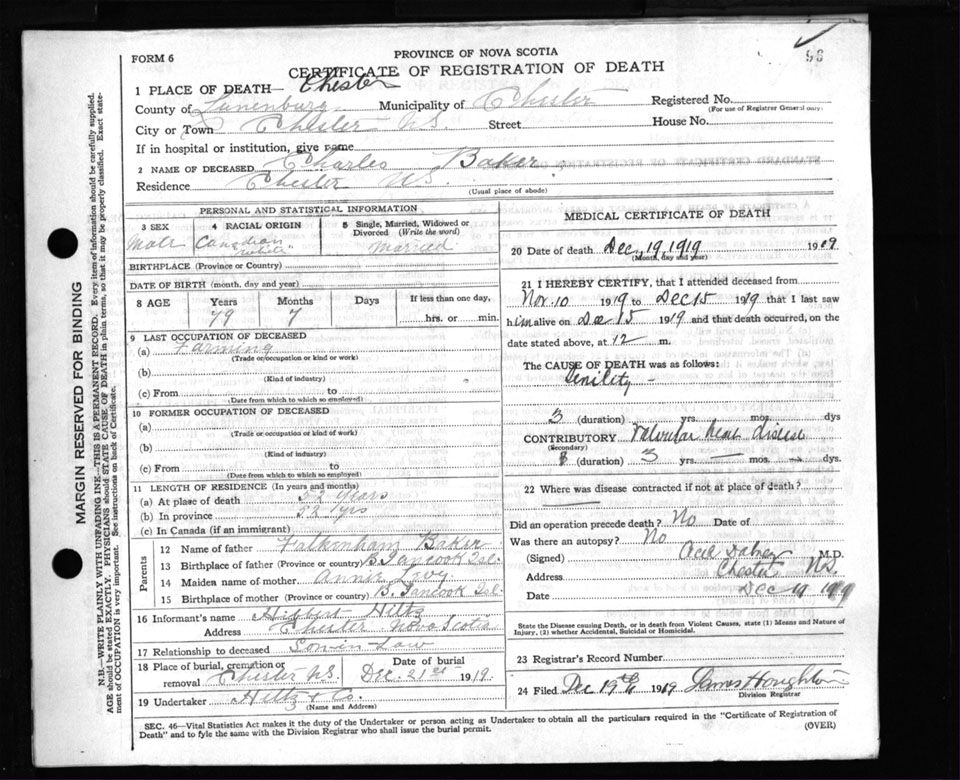 98
FORM 6
PROVINCE OF NOVA SCOTIA
CERTIFICATE OF REGISTRATION OF DEATH
1 PLACE OF DEATH— Chester
County of Lunenburg Municipality of Chester Registered No.
(For use of Registrar General only)
City or Town Chester N.S. Street House No.
If in hospital or institution, give name
2 NAME OF DECEASED Charles Baker
Residence Chester N.S.
(Usual place of abode)
PERSONAL AND STATISTICAL INFORMATION
3 SEX 4 RACIAL ORIGIN 5 Single, Married, Widowed or Divorced (Write the word)
Male Canadian white Married
BIRTHPLACE (Province or Country)
DATE OF BIRTH (month, day and year)
8 AGE Years Months Days If less than one day,
79 7 hrs. or min.
9 LAST OCCUPATION OF DECEASED
(a) Farming
(Trade or occupation or kind or work)
(b)
(Kind of industry)
(c) From to
(Date from which to which so employed)
10 FORMER OCCUPATION OF DECEASED
(a)
(Trade or occupation or kind of work)
(b)
(Kind of industry)
(c) From to
(Date from which to which so employed)
11 LENGTH OF RESIDENCE (In years and months)
(a) At place of death 52 years
(b) In province 52 yrs
(c) In Canada (if an immigrant)
Parents
12 Name of father Falkinham Baker
13 Birthplace of father (Province or country) B. Tancook Isl.
14 Maiden name of mother Annie Levy
15 Birthplace of mother (Province or country) B. Tancook Isl.
16 Informant's name Hibbert Hiltz
Address Chester Nova Scotia
17 Relationship to deceased Son in Law
18 Place of burial, cremation or removal Chester N.S. Date of burial Dec. 21st 1919.
19 Undertaker Hiltz & Co.
(Name and Address)
MEDICAL CERTIFICATE OF DEATH
20 Date of death Dec. 19, 1919 1919
(Month, day and year)
21 I HEREBY CERTIFY, that I attended deceased from
Nov. 10 1919 to Dec 15 1919 that I last saw
him alive on Dec 15 1919 and that death occurred, on the
date stated above, at 12 m.
The CAUSE OF DEATH was as follows:
Senility —
3 (duration) yrs. mos. dys
CONTRIBUTORY Valvular Heart Disease
(Secondary)
(duration) 3 yrs. — mos. — dys.
22 Where was disease contracted if not at place of death?
Did an operation precede death? No Date of
Was there an autopsy? No
(Signed) M.D.
Address Chester N.S.
Date Dec 19 1919
State the Disease causing Death, or in death from Violent Causes, state (1) Means and Nature of
Injury, (2) whether Accidental, Suicidal or Homicidal.
23 Registrar's Record Number
24 Filed Dec 19th 1919 James Houghton
Division Registrar
SEC. 46—Vital Statistics Act makes it the duty of the Undertaker or person acting as Undertaker to obtain all the particulars required in the "Certificate of Registration of
Death" and to fyle the same with the Division Registrar who shall issue the burial permit. (OVER)
MARGIN RESERVED FOR BINDING
N.B.—WRITE PLAINLY WITH UNFADING INK—THIS IS A PERMANENT RECORD. Every item of information should be carefully supplied.
AGE should be stated EXACTLY. PHYSICIANS should STATE CAUSE OF DEATH in plain terms, so that it may be properly classified. Exact statement of OCCUPATION is very important. See instructions on back of Certificate.